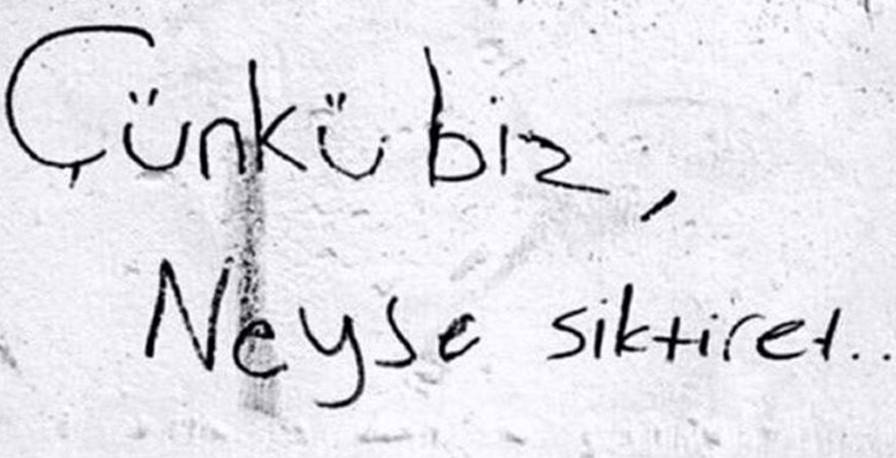 Çünkü biz,
Neyse siktiret..